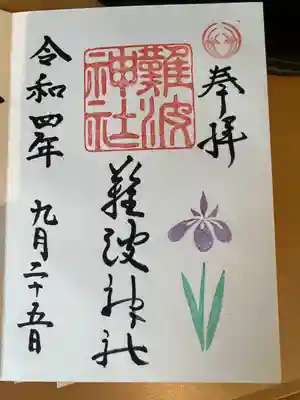 奉拝
難波
神社
難波神社
令和四年 九月二十五日